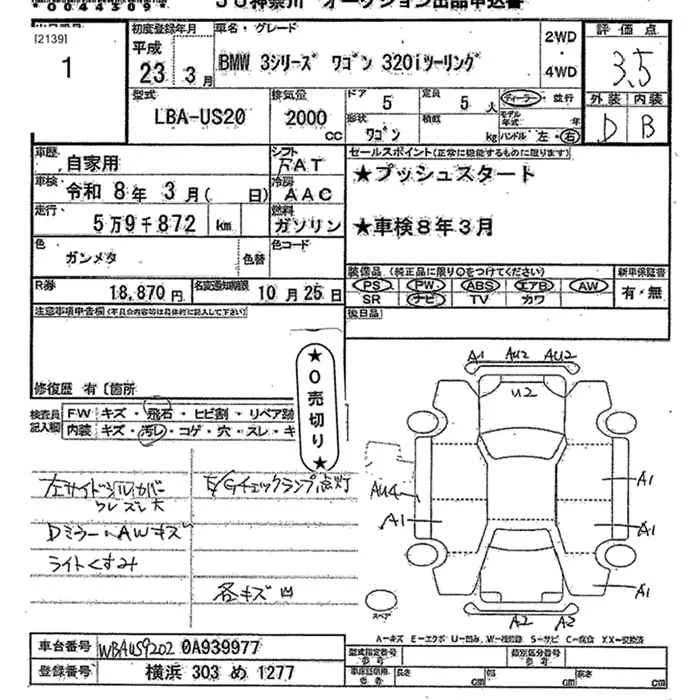 0044309
JU神奈川 オークション出品申込書
[2139]
1
初度登録年月
平成
23年 3月
車名・グレード
BMW 3シリーズ ワゴン 320iツーリング
2WD
・
4WD
評価点
3.5
外装 内装
D B
型式
LBA-US20
排気量
2000
cc
ドア 5
定員 5 人
ディーラー・並行
形状
ワゴン
積載
kg
モデル年式 年
ハンドル 左・右
車歴
自家用
シフト
FAT
セールスポイント(正常に機能するものに限ります)
車検
令和 8年 3月( 日)
冷房
AAC
★プッシュスタート
走行
5万9千872 km
燃料
ガソリン
★車検8年3月
色
ガンメタ
色替
色コード
装備品(純正品に限り○をつけてください)
新車保証書
PS PW ABS エアB AW
SR ナビ TV カワ
有・無
R券
18,870円
名変通知期限
10月25日
注意事項申告欄(不具合内容等は具体的に記入して下さい)
後日品
修復歴 有 [箇所
★0売切り★
検査員記入欄
FW キズ・飛石・ヒビ割・リペア跡
内装 キズ・汚レ・コゲ・穴・スレ・キ
A1 AU2 AU2
U2
左サイドシルカバー
ワレズレ大
E/Gチェックランプ点灯
Dミラー、AWキズ
ライトくすみ
各キズ凹
AU4
A1
A1
A1
A1
A2 A2
スペア
A-キズ E-エクボ U-凹み W-補修跡 S-サビ C-腐食 XX-交換済
車台番号
WBAUS9202 0A939977
登録番号
横浜 303 め 1277
型式指定番号
参考
類別区分番号
参考
車庫証明用
参考
長さ cm
巾 cm
高さ cm